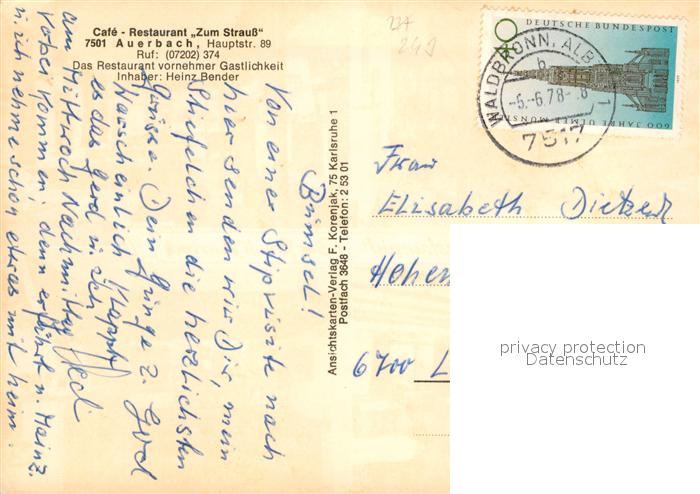 Café - Restaurant „Zum Strauß“
7501 Auerbach, Hauptstr. 89
Ruf: (07202) 374
Das Restaurant vornehmer Gastlichkeit
Inhaber: Heinz Bender
Bimsel!
Von einer Stipvisite nach
hier senden wir Dir, mein
Stiefelchen die herzlichsten
Grüsse. Dein
Warscheinlich klappt
es das Gerd u. ich
am Mittwoch Nachmittag
vorbei kommen, denn er fährt n. Mainz.
u. ich nehme schon etwas mit heim.
Ansichtskarten-Verlag F. Korenjak, 75 Karlsruhe 1
Postfach 3648 - Telefon: 2 53 01
DEUTSCHE BUNDESPOST
600 JAHRE ULMER MÜNSTER
WALDBRONN, ALB
b
-5.-6.78-.8
1
7517
Frau
Elisabeth Dietzed
Hohen
6700 L
privacy protection
Datenschutz